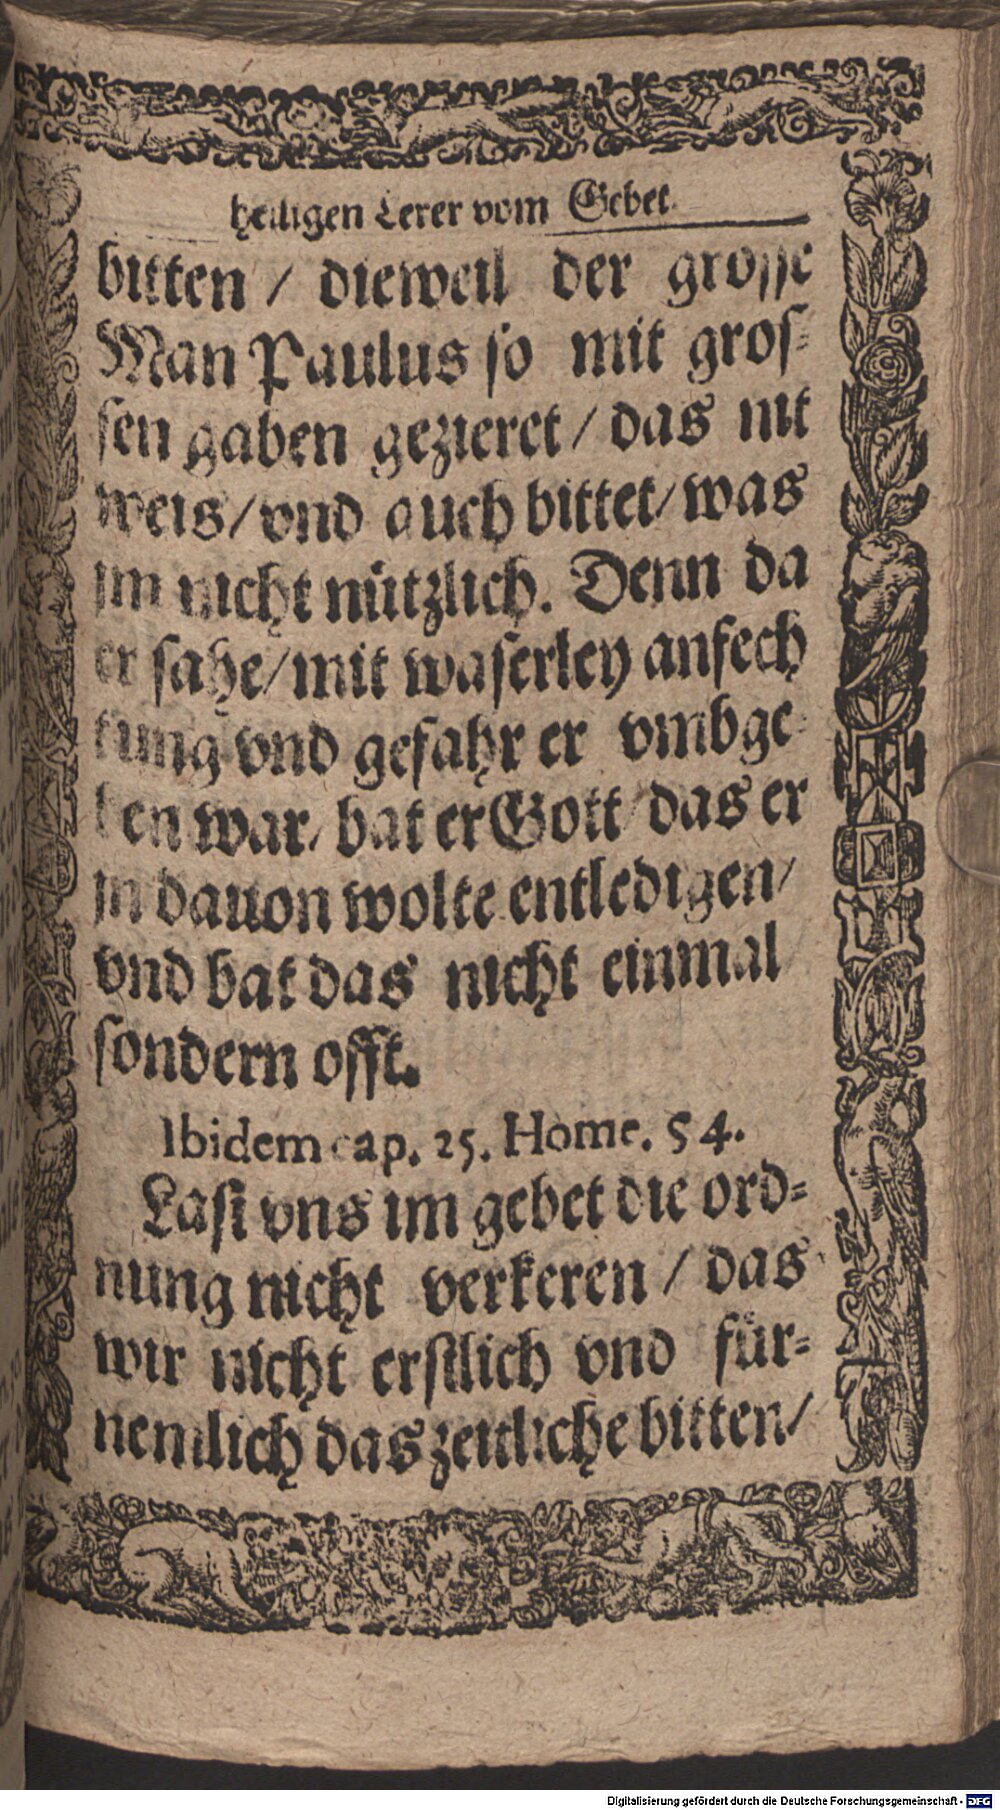 heiligen Lerer vom Gebet.
bitten / dieweil der grosse
Man Paulus so mit gros-
sen gaben gezieret / das nit
weis / vnd auch bittet / was
im nicht nützlich. Denn da
er sahe / mit waserley anfech
tung vnd gefahr er vmbge-
ben war / bat er Gott das er
in dauon wolte entledigen /
vnd bat das nicht einmal
sondern offt.
Ibidem cap. 25. Home. 54.
Last vns im gebet die ord-
nung nicht verkeren / das
wir nicht erstlich vnd für-
nemlich das zeitliche bitten /
Digitalisierung gefördert durch die Deutsche Forschungsgemeinschaft - DFG